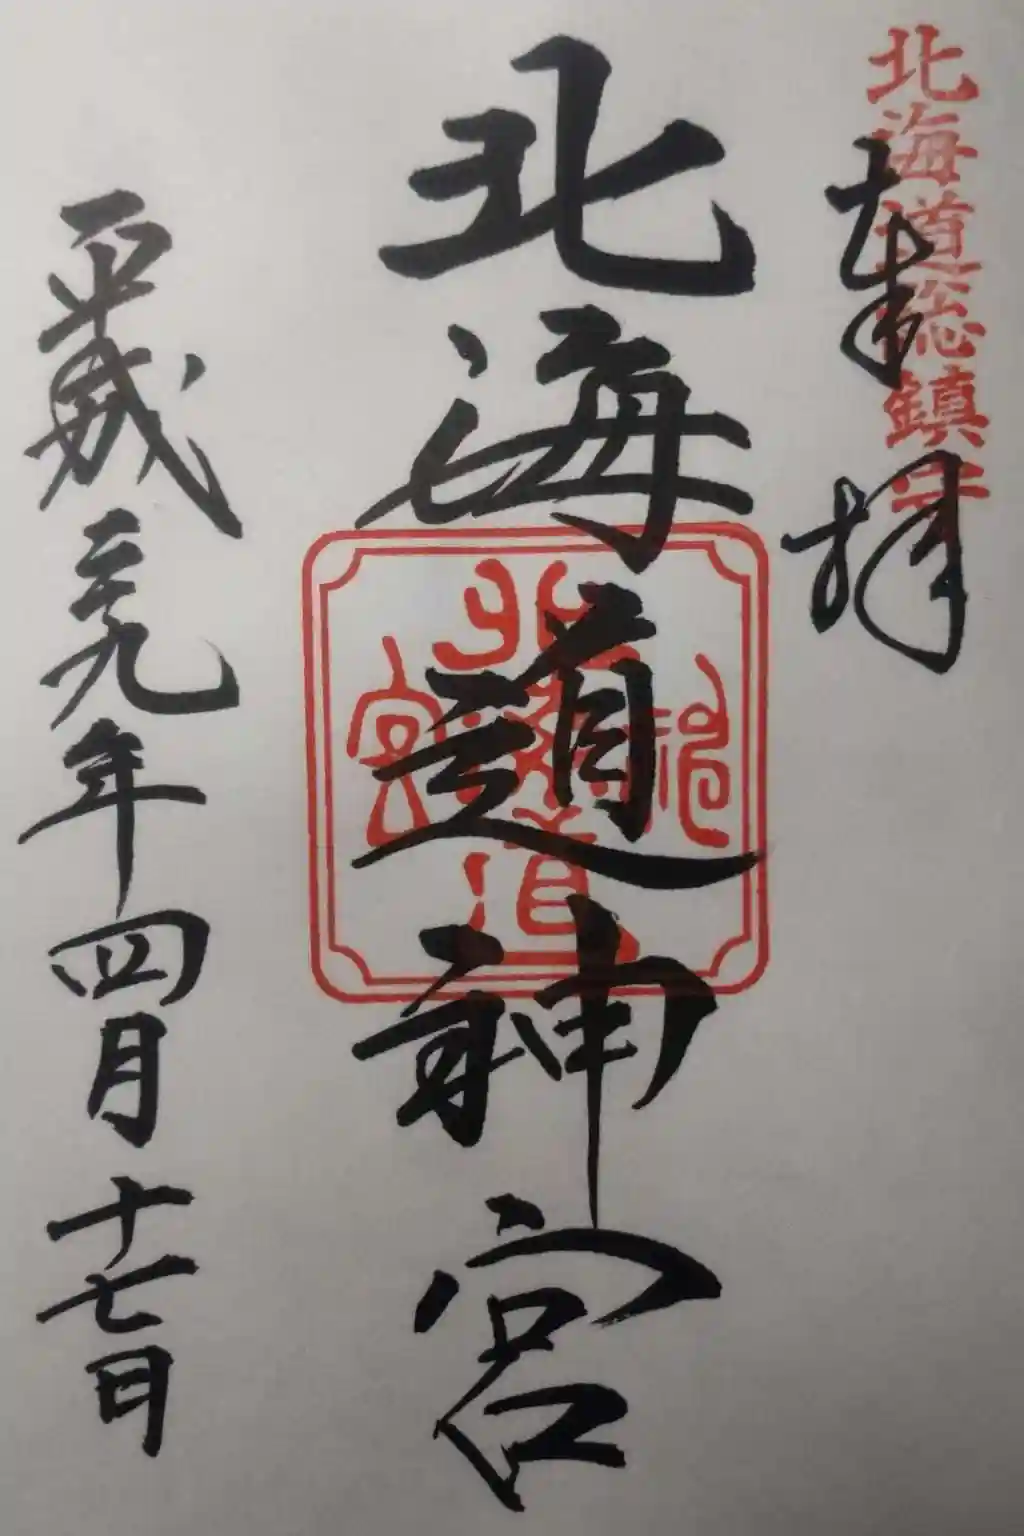 北海道総鎮守
奉拝
北海道神宮
北海道神宮
平成二十九年四月十七日